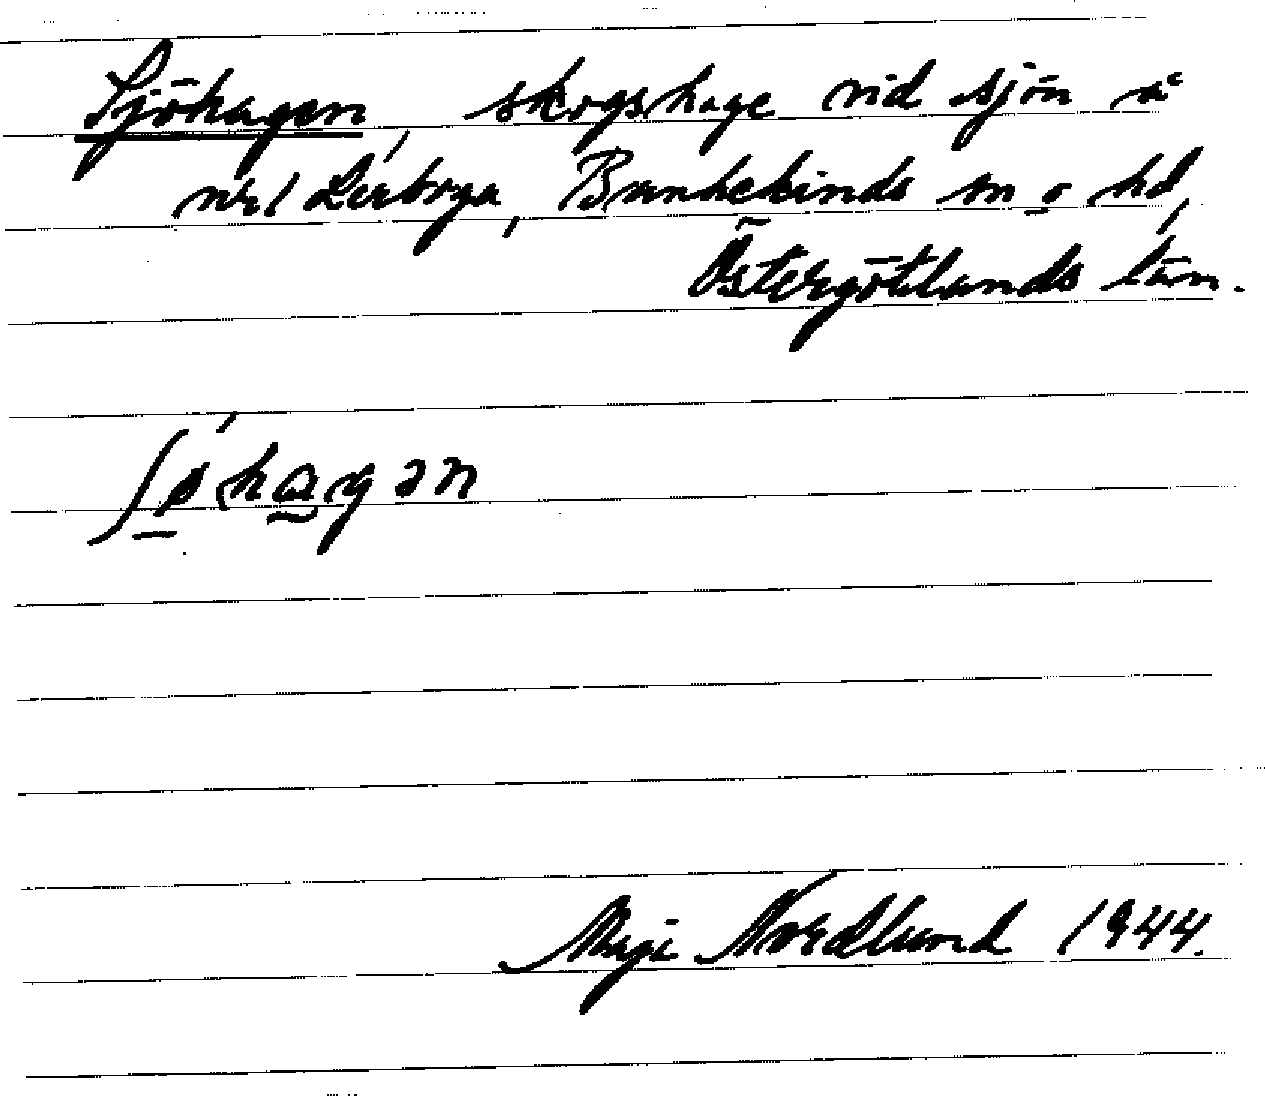 Sjöhagen, skogshage vid sjön å
nr 1 Lerboga, Bankekinds sn o hd,
Östergötlands län.
ʃøhɑgən
Maja Nordlund 1944.